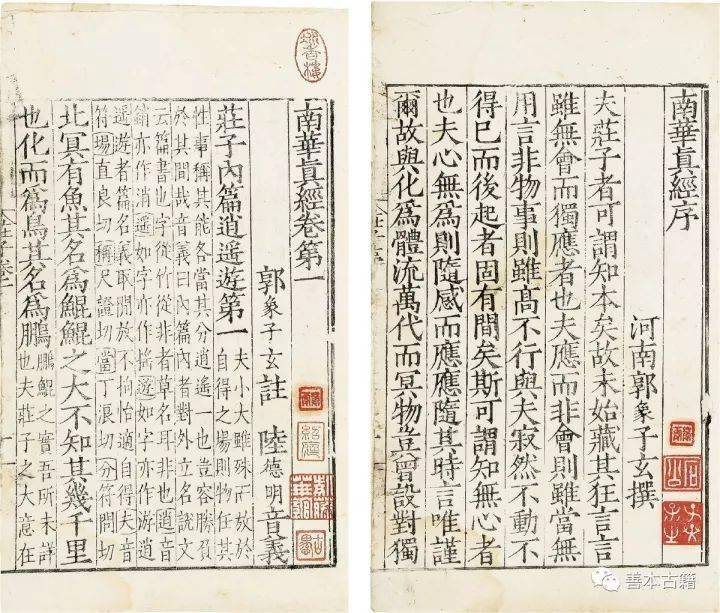 南華真經序
河南郭象子玄撰
夫莊子者可謂知本矣故未始藏其狂言言
雖無會而獨應者也夫應而非會則雖當無
用言非物事則雖高不行與夫寂然不動不
得已而後起者固有間矣斯可謂知無心者
也夫心無為則隨感而應應隨其時言唯謹
爾故與化為體流萬代而冥物豈曾設對獨
南華真經卷第一
郭象子玄註 陸德明音義
莊子內篇逍遙遊第一
夫小大雖殊而放於
自得之場則物任其
性事稱其能各當其分逍遙一也豈容勝負
於其間哉音義曰內篇內者對外立名說文
云篇書也字從竹從艸者草名耳非也逍音
銷亦作消遙如字亦作搖遊如字亦作游逍
遙遊者篇名義取閒放不拘怡適自得夫音
符場直良切稱尺證切當丁浪切分符問切
北冥有魚其名為鯤鯤之大不知其幾千里
也化而為鳥其名為鵬
鵬鯤之實吾所未詳
也夫莊子之大意在
善本古籍